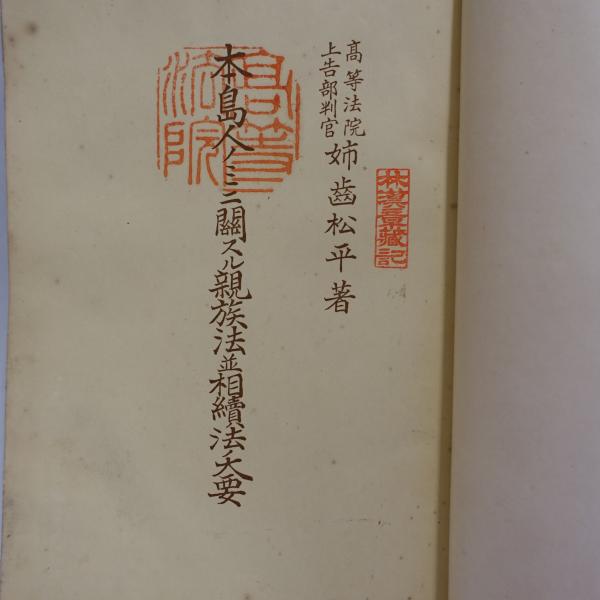 高等法院
上告部判官
姉齒松平著
本島人ノミニ關スル親族法並相續法ノ大要
高等
法院
林漢章藏記